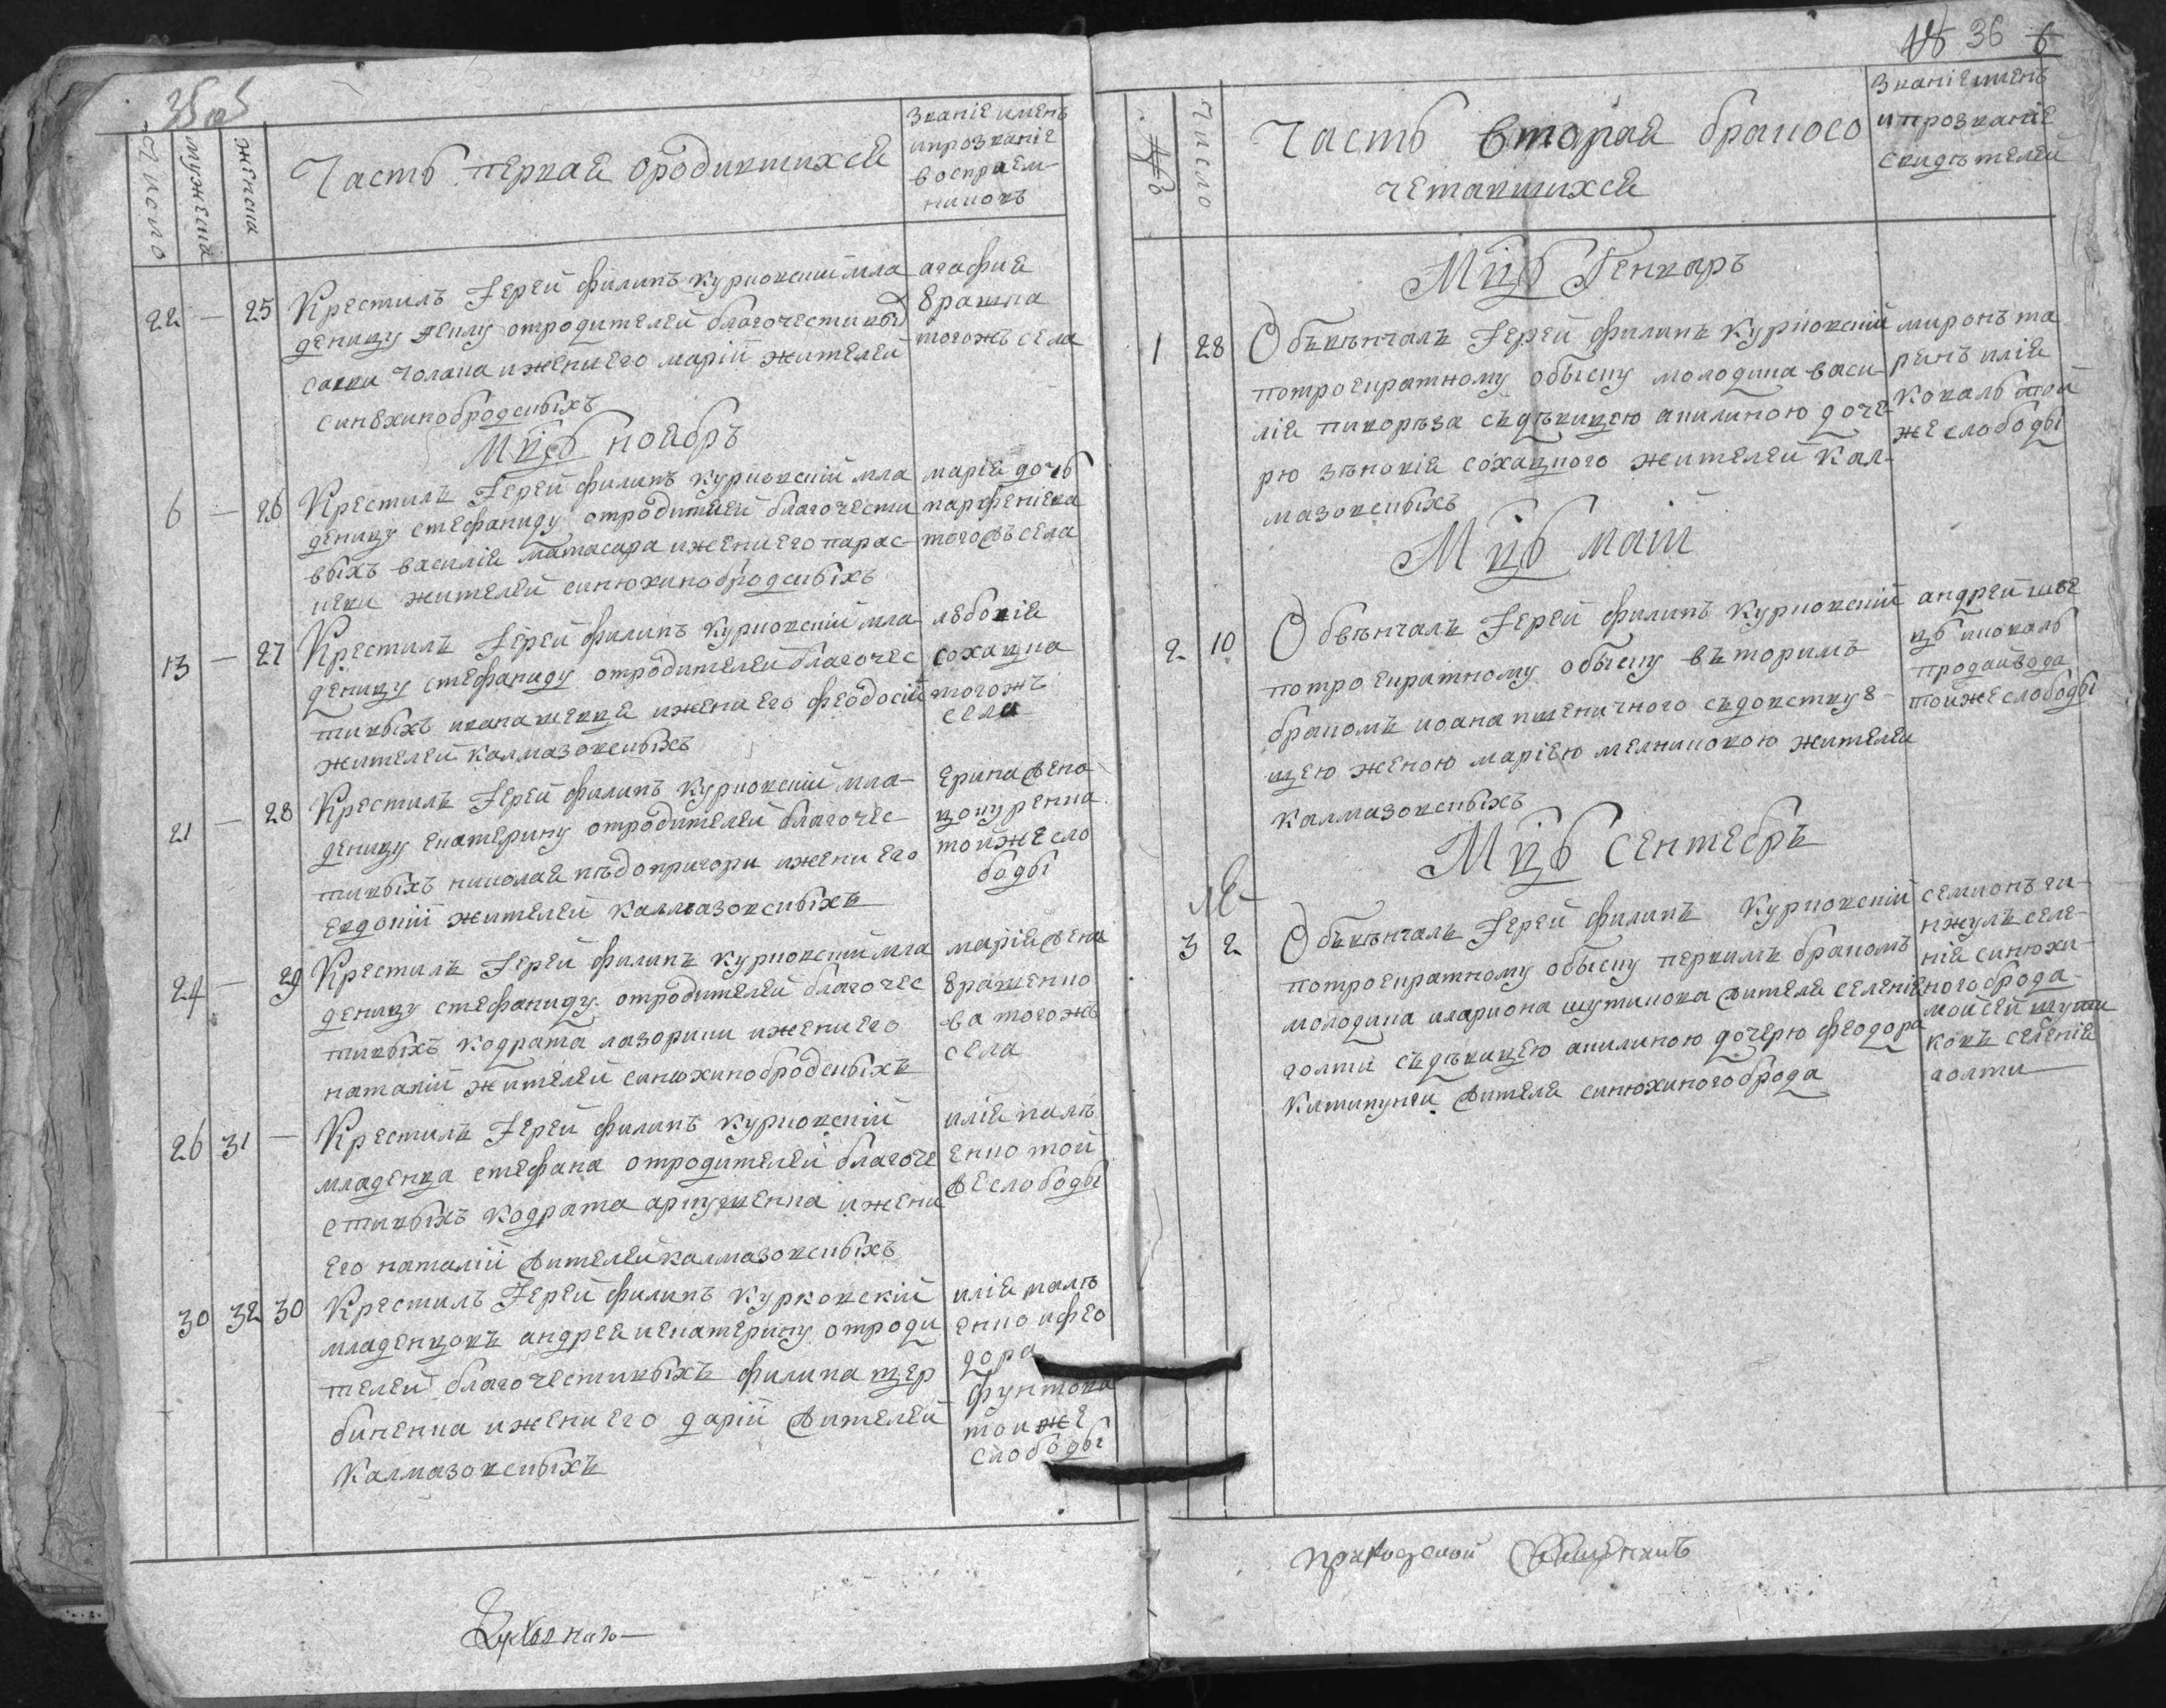 35
число
мужеска
женска
Часть первая ородившихся
званіе имень
ипрозваніе
воспріем-
никовъ
22 — 25 Крестилъ Іерей филипъ курковскій мла
деницу отродителей благочестивы
савки чолана ижени его маріи жителей
синюхинобродскихъ
агафия
тогожъ села
Мцъ ноябръ
6 — 26 Крестилъ Іерей филипъ курковскій мла
деницу стефаниду отродителей благочести
выхъ василія матасара ижени его парас-
кеви жителей синюхинобродскихъ
марія дочь
парфеніева
тогожъ села
13 — 27 Крестилъ Іерей филипъ курковскій мла
деницу стефаниду отродителей благочес
тивыхъ ивана ижени его феодосіи
жителей калмазовскихъ
сохацка
тогожъ
села
21 — 28 Крестилъ Іерей филипъ курковскій мла-
деницу екатерину отродителей благочес
тивыхъ николая підопригори ижени его
евдокіи жителей калмазовскихъ
ерина жена
цокуренка
тойже сло
боды
24 — 29 Крестилъ Іерей филипъ курковскій мла
деницу стефаниду отродителей благочес
тивыхъ кодрата лазорики ижени его
наталіи жителей синюхинобродскихъ
марія жена
ва тогожъ
села
26 31 — Крестилъ Іерей филипъ курковскій
младенца стефана отродителей благоче
стивыхъ кодрата артушенка ижени
его наталіи жителей калмазовскихъ
илія палъ
енко той
же слободы
30 32 30 Крестилъ Іерей филипъ курковскій
младенцовъ андрея иекатерину отроди
телей благочестивыхъ филипа щер
биненка ижени его даріи жителей
калмазовскихъ
илія палъ
енко ифео
дора
фунтова
тойже
слободы
36
№
число
Часть вторая бракосо
четавшихся
званіе имень
ипрозваніе
свидѣтелей
Мцъ Генваръ
1 28 Объвѣнчалъ Іерей филипъ курковскій
потроекратному обыску молодика васи-
лія пивовѣза съдѣвицею акилиною доче
рю зѣновія сохацкого жителей кал-
мазовскихъ
миронъ та
ранъ илія
коваль той
же слободы
Мцъ маій
2 10 Обвѣнчалъ Іерей филипъ курковскій
потроекратному обыску въторимъ
бракомъ иоана пшеничного съдовствую-
щею женою маріею мелниковою жителей
калмазовскихъ
андрей шве
ць яковаль
продайвода
тойже слободы
Мцъ Сентебръ
3 2 Объвѣнчалъ Іерей филипъ курковскій
потроекратному обыску первимъ бракомъ
молодика илариона шутикова жителя селенія
голти съдѣвицею акилиною дочерю феодора
катипунги жителя синюхиногоброда
семионъ ги-
нжулъ селе-
нія синюхи-
ногоброда
мойсей шути
ковъ селенія
голти
приходской Священникъ